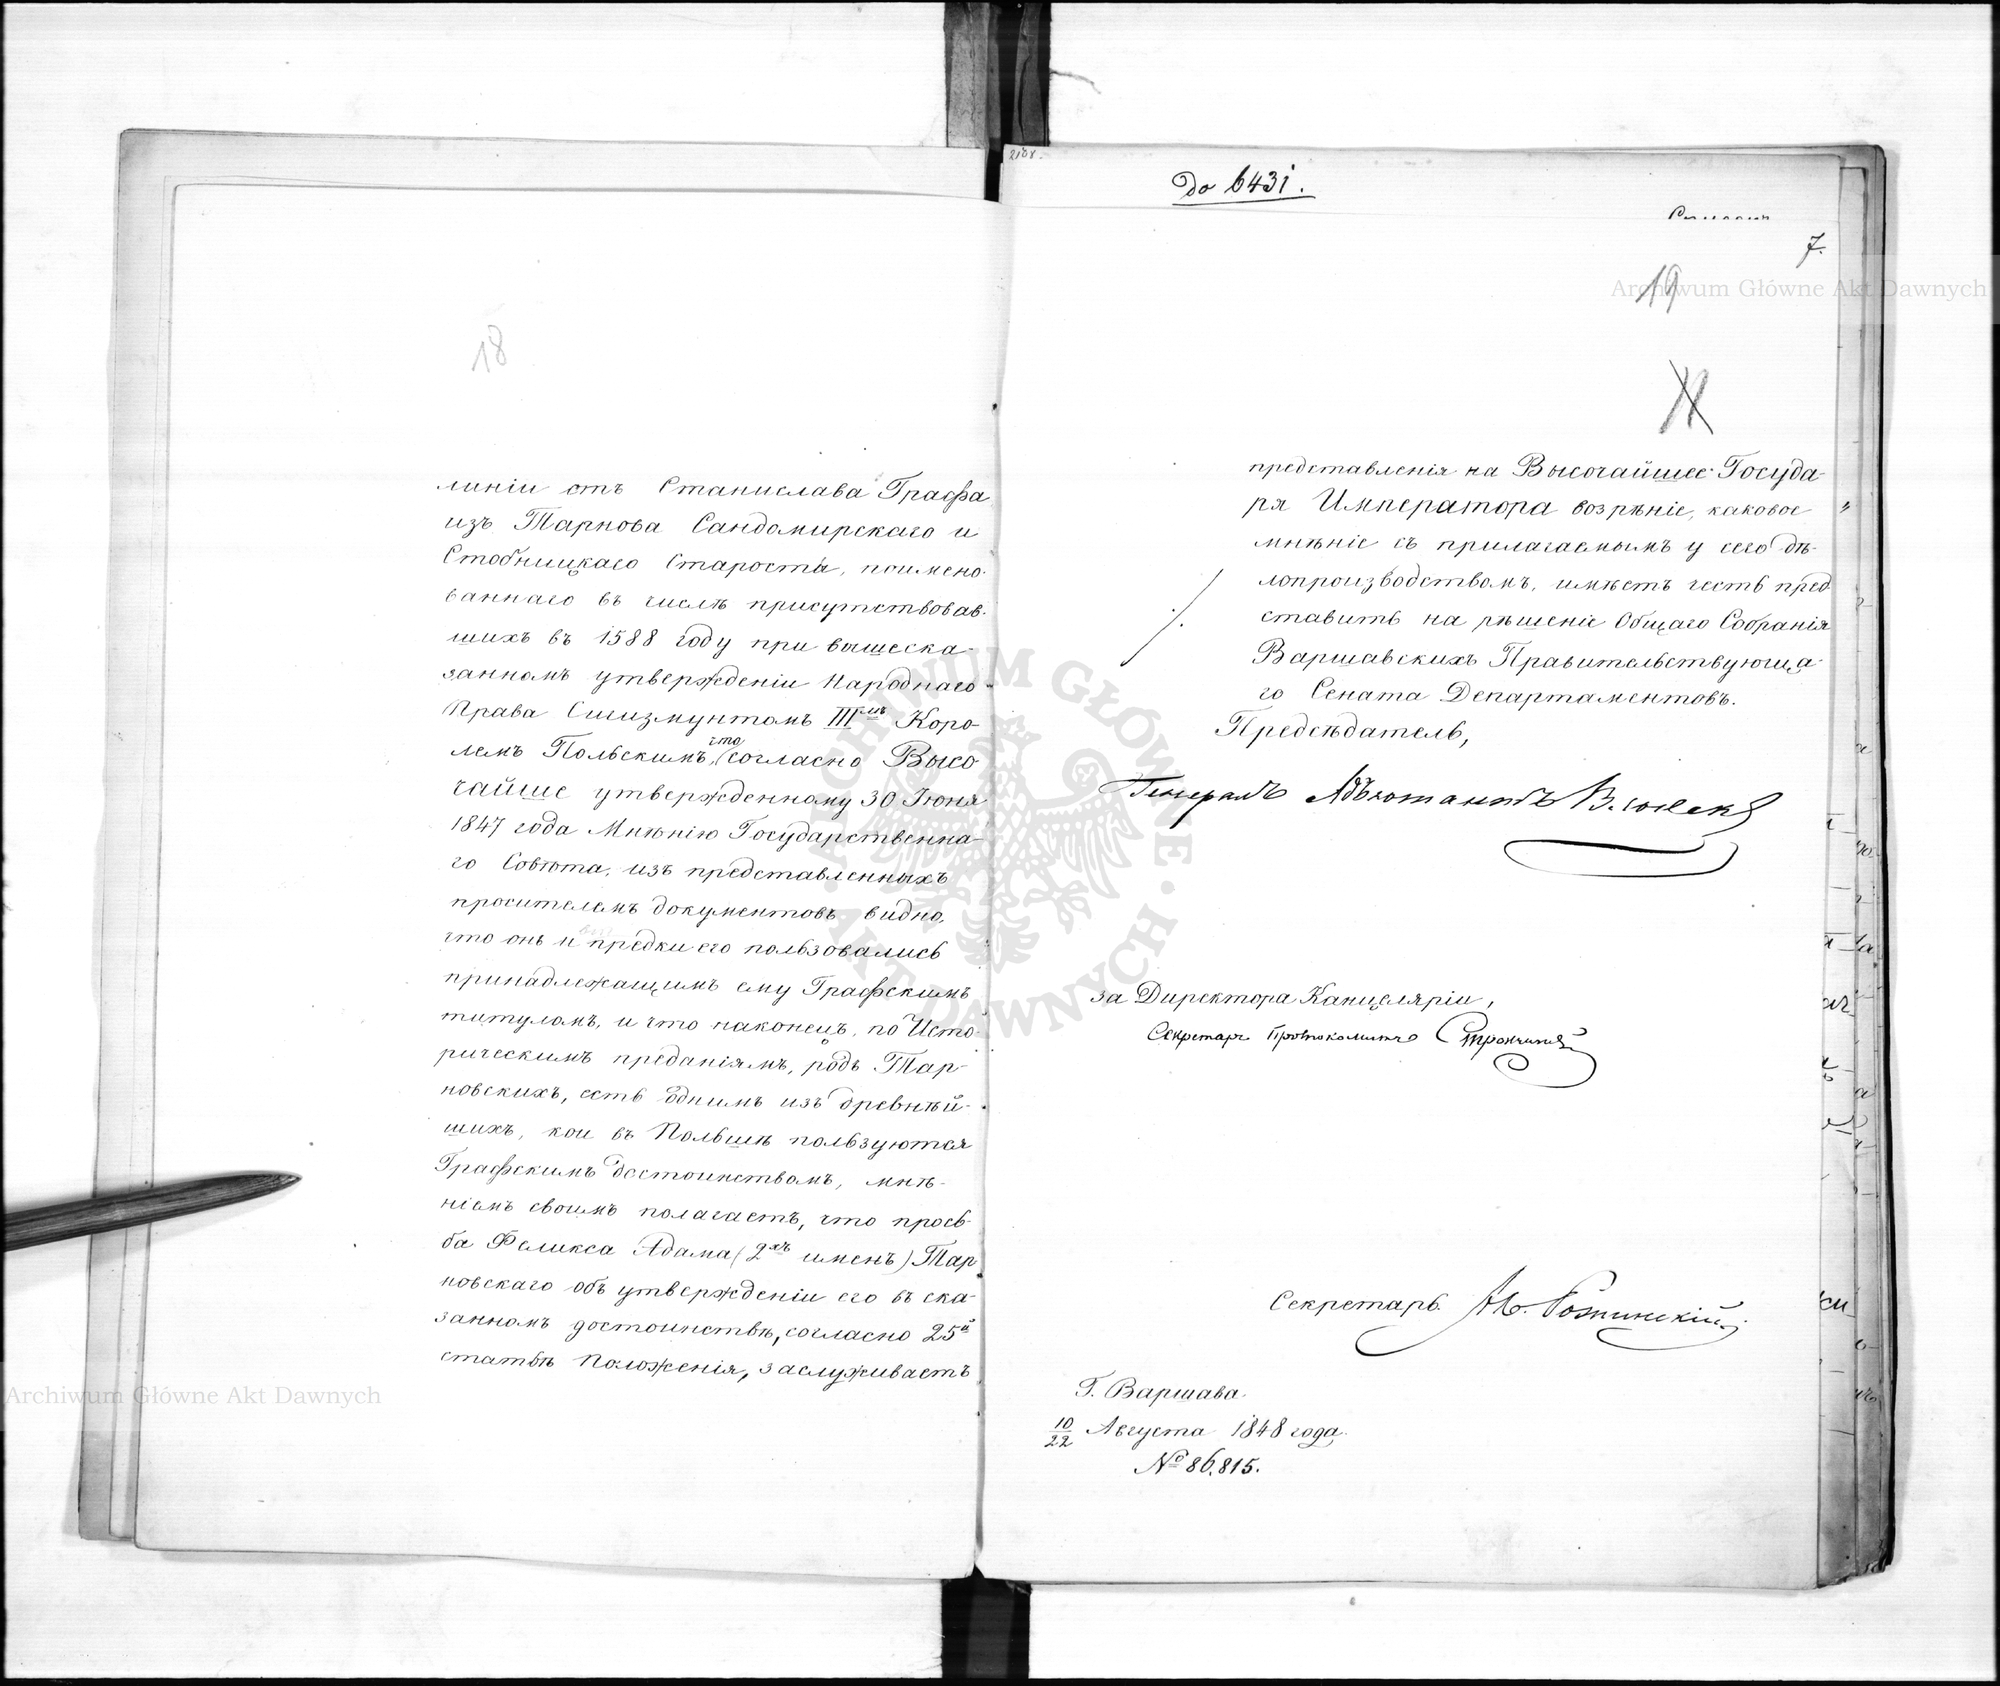 18
линіи отъ Станислава Графа
изъ Тарнова Сандомирскаго и
Стобницкаго Старосты, поимено-
ваннаго въ числѣ присутствовав-
шихъ въ 1588 году при вышеска-
занномъ утвержденіи Народнаго
Права Сигизмунтомъ IIIмъ Коро-
лемъ Польскимъ, что согласно Высо
чайше утвержденному 30 Іюня
1847 года Мнѣнію Государственна-
го Совѣта, изъ представленныхъ
просителемъ документовъ видно,
что онъ и предки его пользовались
принадлежащимъ ему Графскимъ
титуломъ, и что наконецъ, по Исто-
рическимъ преданіямъ, родъ Тар-
новскихъ, есть однимъ изъ древнѣй-
шихъ, кои въ Польшѣ пользуются
Графскимъ достоинствомъ, мнѣ-
ніемъ своимъ полагаетъ, что прось-
ба Феликса Адама (2хъ именъ) Тар
новскаго объ утвержденіи его въ ска-
занномъ достоинствѣ, согласно 25й
статьѣ Положенія, заслуживаетъ
2108.
До 6431.
7.
19
представленія на Высочайшее Госуда-
ря Императора возрѣніе, каковое
мнѣніе съ прилагаемымъ у сего дѣ-
лопроизводствомъ, имѣетъ честь пред
ставить на рѣшеніе Общаго Собранія
Варшавскихъ Правительствующа-
го Сената Департаментовъ.
Предсѣдатель,
Генералъ Адъютантъ
за Директора Канцеляріи,
Секретарь Протоколистъ
Секретарь
Г. Варшава
10/22 Августа 1848 года.
№ 86,815.
Archiwum Główne Akt Dawnych
Archiwum Główne Akt Dawnych
ARCHIWUM GŁÓWNE AKT DAWNYCH